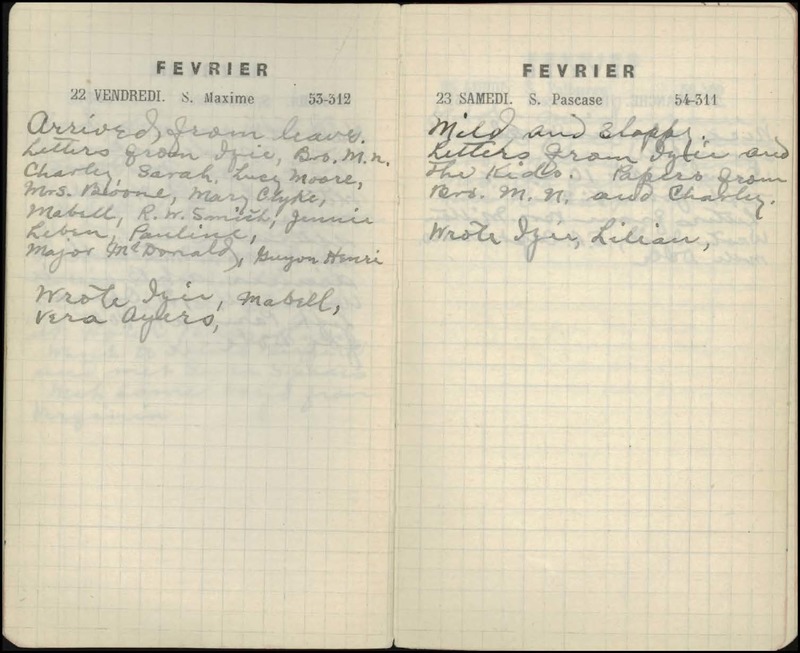 FEVRIER
22 VENDREDI. S. Maxime 53-312
Arrived from leave.
Letters from Izie, Bro. M. N.
Charley, Sarah, Lucy Moore,
Mrs. Boone, Mary Clyke,
Mabell, R. W. Smith, Jennie
Leben, Pauline,
Major McDonald, Guyon Henri
Wrote Izie, Mabell,
Vera Ayers,
FEVRIER
23 SAMEDI. S. Pascase 54-311
Mild and sloppy.
Letters from Izie and
the Kids. Papers from
Bro. M. N. and Charley.
Wrote Izie, Lilian,